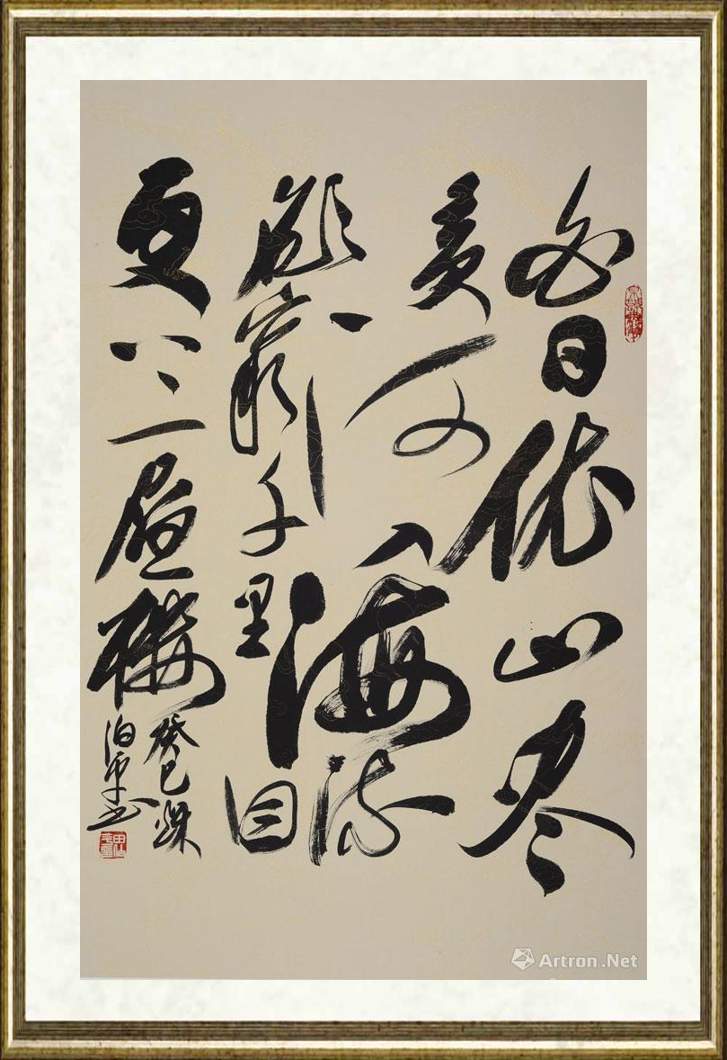 白日依山尽
黄河入海流
欲穷千里目
更上一层楼
癸巳
泊平书
Artron.Net